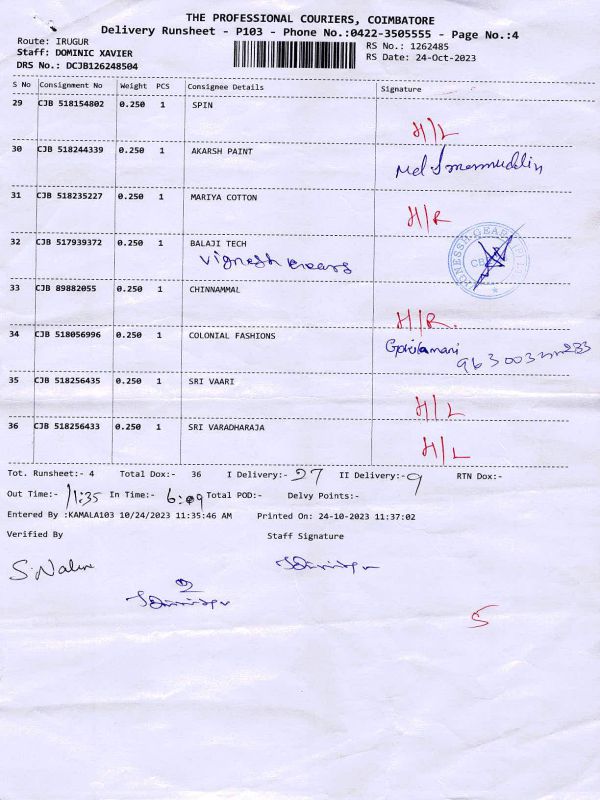 THE PROFESSIONAL COURIERS, COIMBATORE
Delivery Runsheet - P103 - Phone No.:0422-3505555 - Page No.:4
Route: IRUGUR
RS No.: 1262485
Staff: DOMINIC XAVIER
RS Date: 24-Oct-2023
DRS No.: DCJB126248504
S No Consignment No Weight PCS Consignee Details Signature
29 CJB 518154802 0.250 1 SPIN
H/L
30 CJB 518244339 0.250 1 AKARSH PAINT
31 CJB 518235227 0.250 1 MARIYA COTTON
H/R
32 CJB 517939372 0.250 1 BALAJI TECH
Vignesh
33 CJB 89882055 0.250 1 CHINNAMMAL
H/R.
34 CJB 518056996 0.250 1 COLONIAL FASHIONS
35 CJB 518256435 0.250 1 SRI VAARI
H/L
36 CJB 518256433 0.250 1 SRI VARADHARAJA
H/L
Tot. Runsheet:- 4 Total Dox:- 36 I Delivery:- 27 II Delivery:- 9 RTN Dox:-
Out Time:- 11:35 In Time:- 6:09 Total POD:- Delvy Points:-
Entered By :KAMALA103 10/24/2023 11:35:46 AM Printed On: 24-10-2023 11:37:02
Verified By Staff Signature